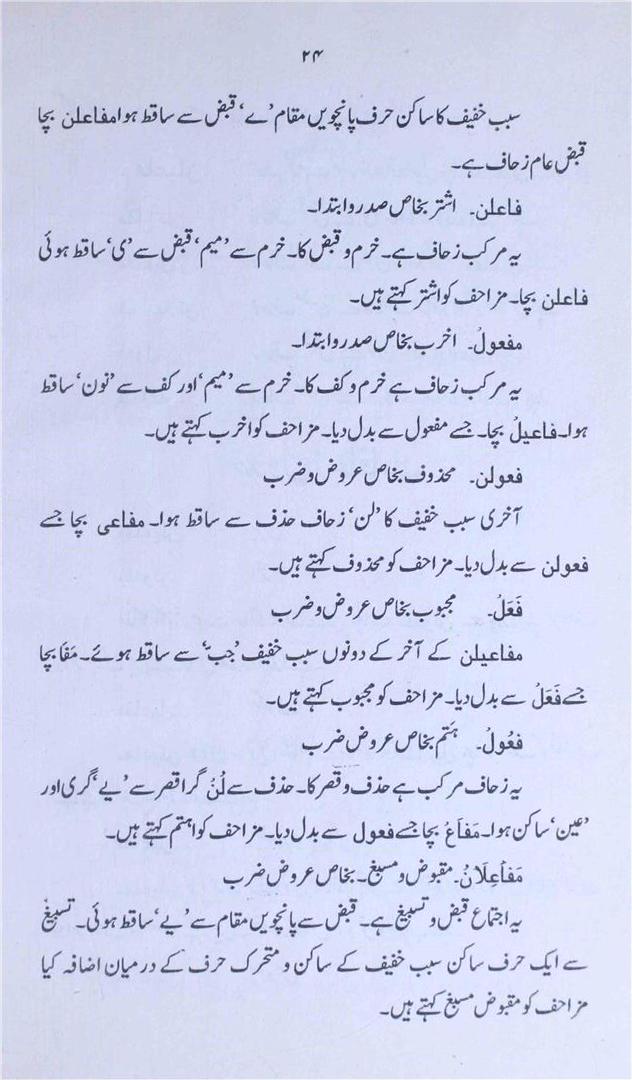 ۲۴
سبب خفیف کا ساکن حرف پانچویں مقام ’ے‘ قبض سے ساقط ہوا مفاعلن بچا
قبض عام زحاف ہے۔
فاعلن۔ اشتر بخاص صدر و ابتدا۔
یہ مرکب زحاف ہے۔ خرم و قبض کا۔ خرم سے ’میم‘ قبض سے ’ی‘ ساقط ہوئی
فاعلن بچا۔ مزاحف کو اشتر کہتے ہیں۔
مفعولُ۔ اخرب بخاص صدر و ابتدا۔
یہ مرکب زحاف ہے خرم و کف کا۔ خرم سے ’میم‘ اور کف سے ’نون‘ ساقط
ہوا۔ فاعیلُ بچا۔ جسے مفعول سے بدل دیا۔ مزاحف کو اخرب کہتے ہیں۔
فعولن۔ محذوف بخاص عروض و ضرب
آخری سبب خفیف کا ’لن‘ زحاف حذف سے ساقط ہوا۔ مفاعی بچا جسے
فعولن سے بدل دیا۔ مزاحف کو محذوف کہتے ہیں۔
فَعَلُ۔ مجبوب بخاص عروض و ضرب
مفاعیلن کے آخر کے دونوں سبب خفیف ’جب‘ سے ساقط ہوئے۔ مَفَا بچا
جسے فَعَلُ سے بدل دیا۔ مزاحف کو مجبوب کہتے ہیں۔
فعُولُ۔ ہَتم بخاص عروض ضرب
یہ زحاف مرکب ہے حذف و قصر کا۔ حذف سے لُنْ گرا قصر سے ’یے‘ گری اور
’عین‘ ساکن ہوا۔ مَفَاعُ بچا جسے فعول سے بدل دیا۔ مزاحف کو اہتم کہتے ہیں۔
مَفَاعِلَانُ۔ مقبوض و مسبغ۔ بخاص عروض ضرب
یہ اجتماع قبض و تسبیغ ہے۔ قبض سے پانچویں مقام سے ’یے‘ ساقط ہوئی۔ تسبیغ
سے ایک حرف ساکن سبب خفیف کے ساکن و متحرک حرف کے درمیان اضافہ کیا
مزاحف کو مقبوض مسبغ کہتے ہیں۔